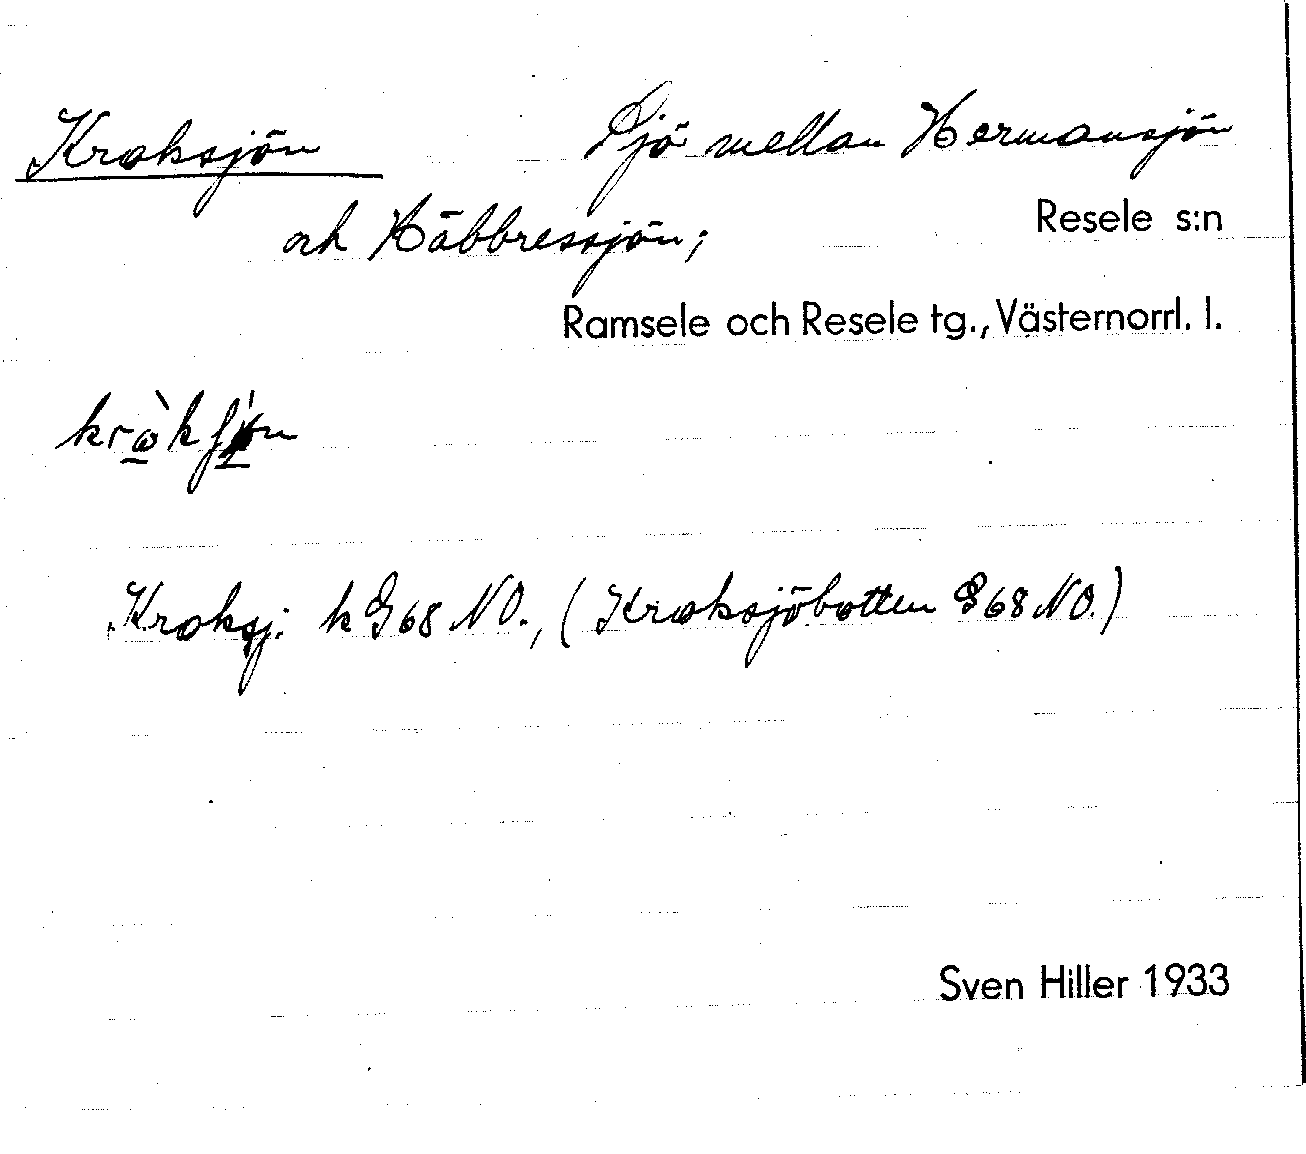 Kroksjön Sjö mellan Hermansjön
och Häbbressjön; Resele s:n
Ramsele och Resele tg., Västernorrl. l.
Kroksj. k G68 NO., (Kroksjöbotten G68 NO.)
Sven Hiller 1933